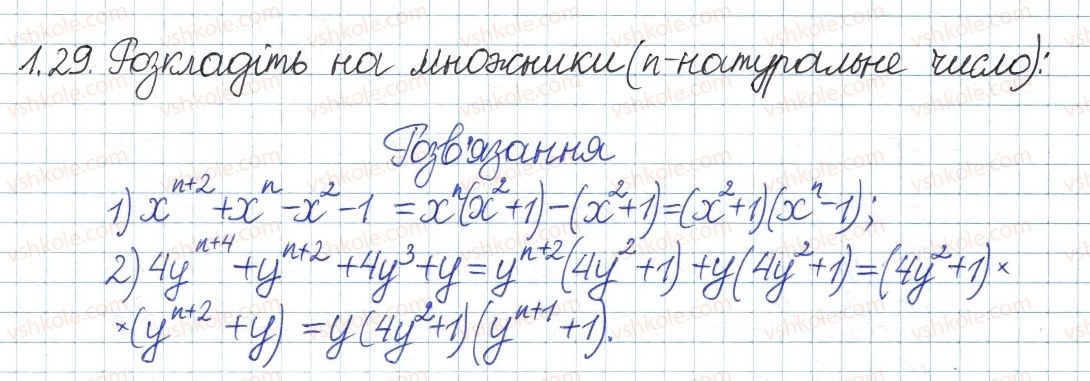 1.29. Розкладіть на множники (n-натуральне число):
Розв'язання
1) x^{n+2} + x^n - x^2 - 1 = x^n(x^2+1) - (x^2+1) = (x^2+1)(x^n-1);
2) 4y^{n+4} + y^{n+2} + 4y^3 + y = y^{n+2}(4y^2+1) + y(4y^2+1) = (4y^2+1) ×
× (y^{n+2} + y) = y(4y^2+1)(y^{n+1}+1).